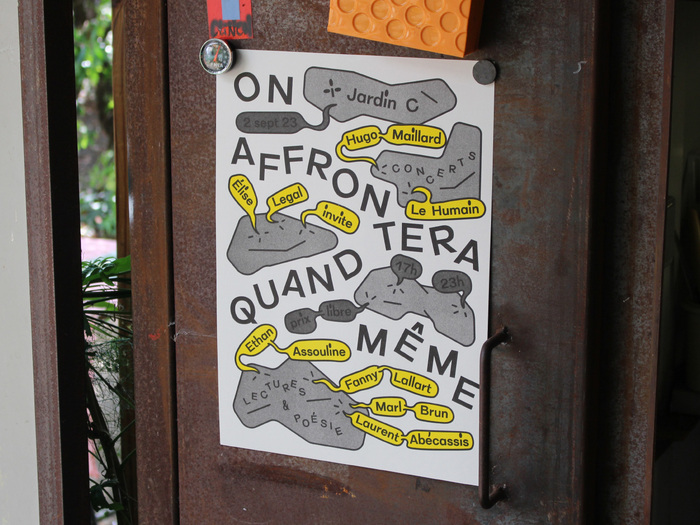 ON
Jardin C
2 sept 23
Hugo Maillard
CONCERTS
AFFRON
Le Humain
Élise Legal invite
TERA
QUAND
17h
23h
prix libre
MÊME
Ethan Assouline
Fanny Lallart
LECTURES
& POÉSIE
Marl Brun
Laurent Abécassis